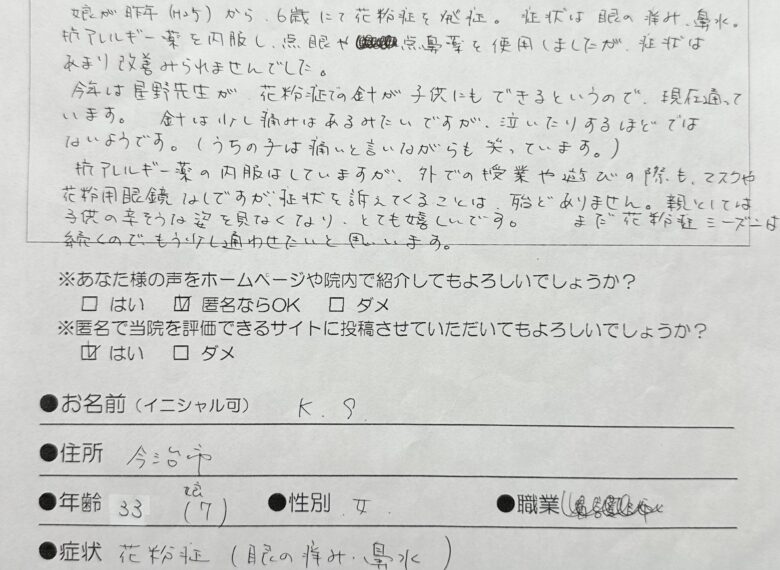 娘が昨年(H25)から、6歳にて花粉症を発症。症状は眼の痒み、鼻水。
抗アレルギー薬を内服し、点眼や点鼻薬を使用しましたが、症状は
あまり改善みられませんでした。
今年は星野先生が、花粉症での針が子供にもできるというので、現在通って
います。針は少し痛みはあるみたいですが、泣いたりするほどでは
ないようです。(うちの子は痛いと言いながらも笑っています。)
抗アレルギー薬の内服はしていますが、外での授業や遊びの際も、マスクや
花粉用眼鏡なしですが、症状を訴えてくることは、殆どありません。親としては
子供の辛そうな姿を見なくなり、とても嬉しいです。まだ花粉症シーズンは
続くので、もう少し通わせたいと思います。
※あなた様の声をホームページや院内で紹介してもよろしいでしょうか?
□ はい ☑ 匿名ならOK □ ダメ
※匿名で当院を評価できるサイトに投稿させていただいてもよろしいでしょうか?
☑ はい □ ダメ
●お名前(イニシャル可) K.S.
●住所 今治市
●年齢 33 娘(7) ●性別 女 ●職業
●症状 花粉症(眼の痒み・鼻水)